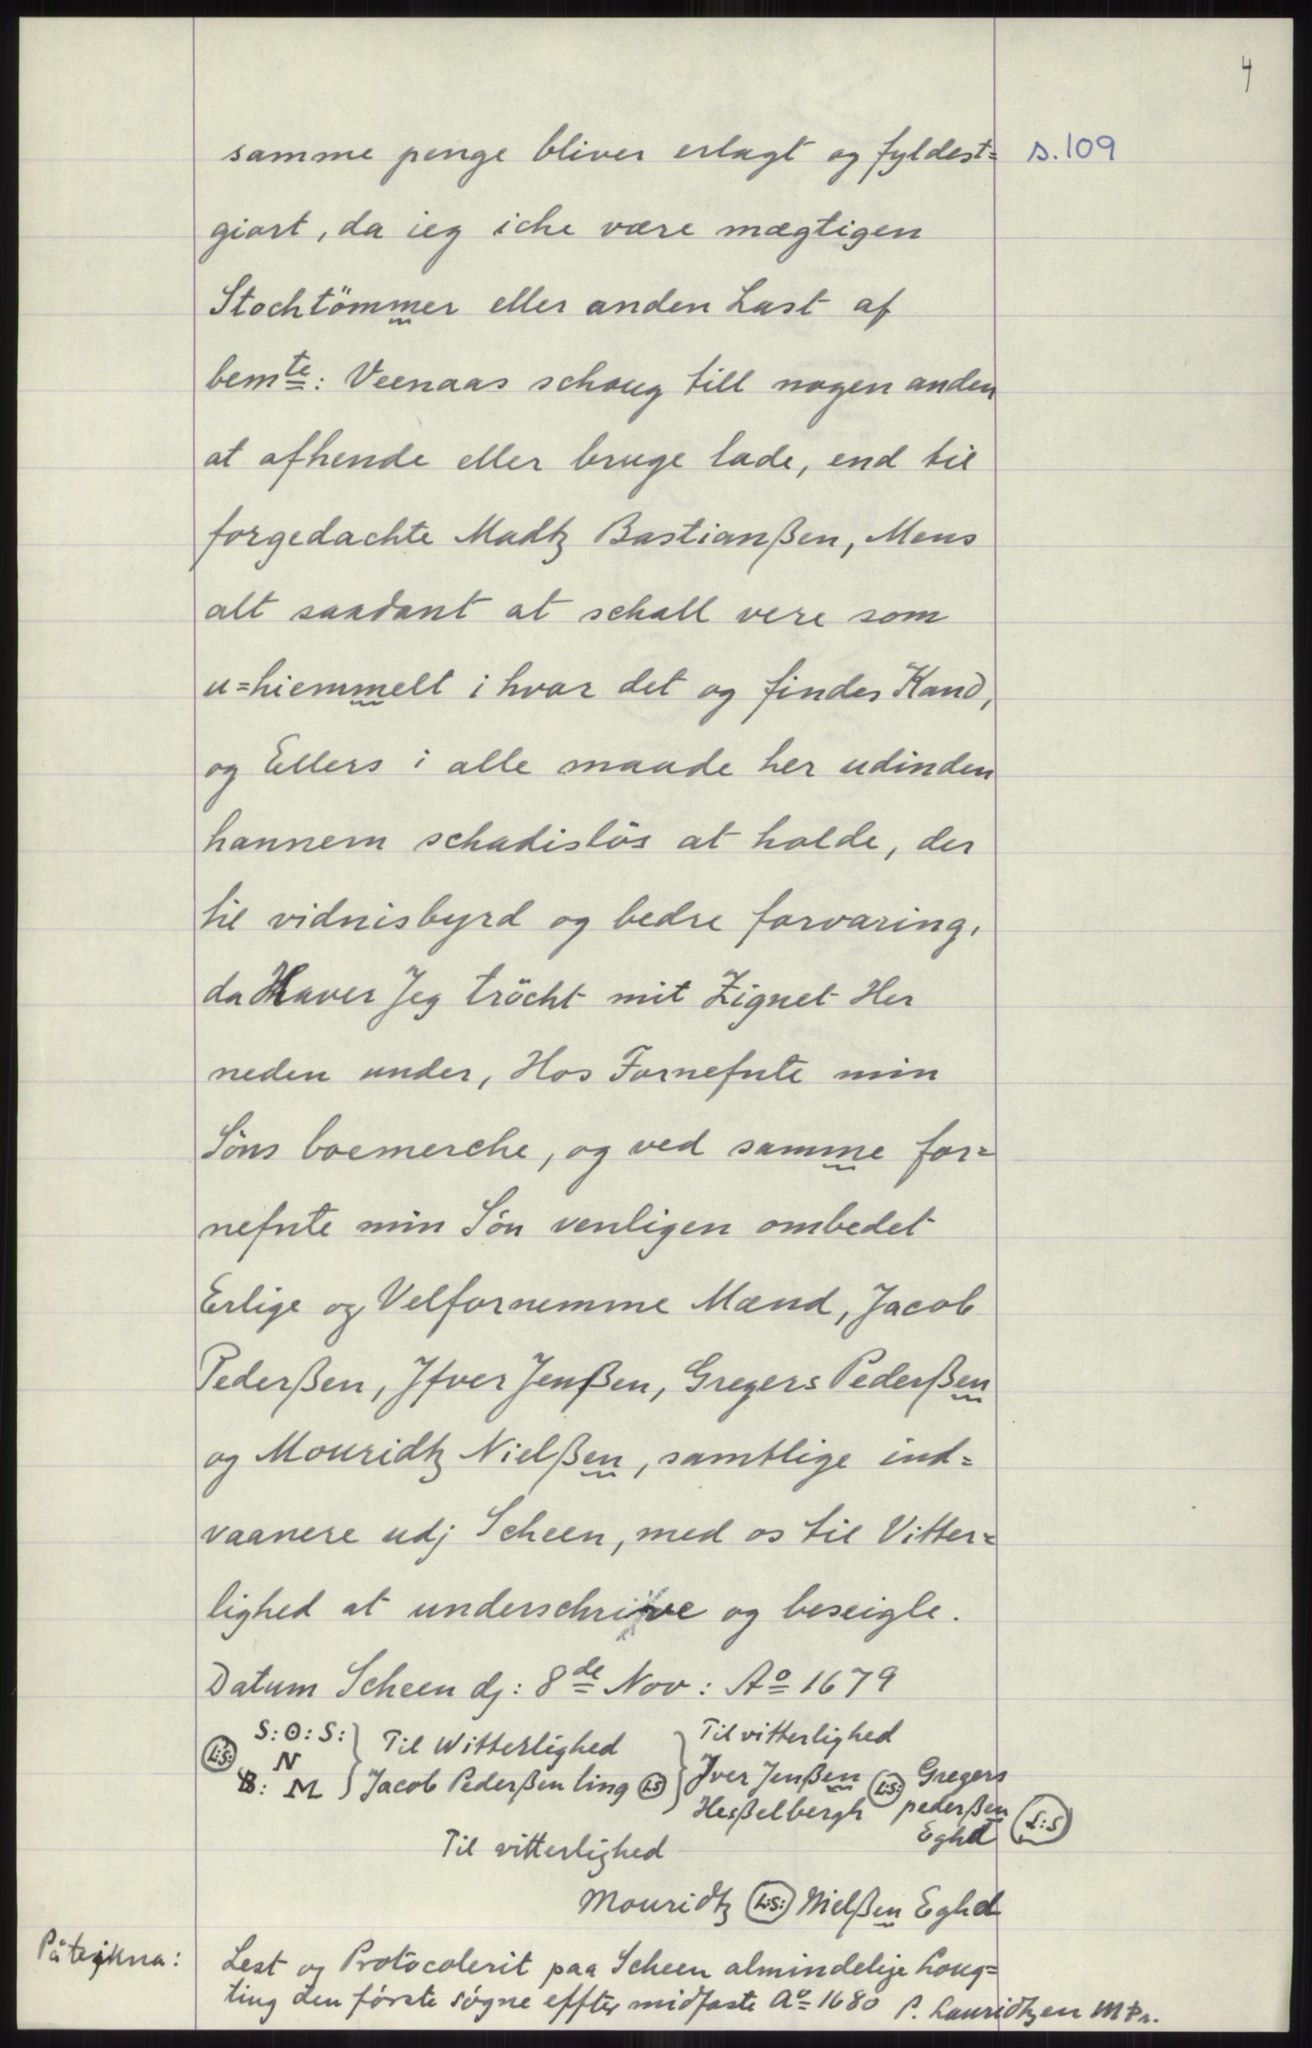 4
samme penge bliver erlagt og fyldest= s. 109
giort, da ieg iche være mægtigen
Stochtömmer eller anden Last af
bemte: Veenaas schoug till nogen anden
at afhende eller bruge lade, end til
forgedachte Madtz Bastianßen, Mens
alt saadant at schall vere som
u=hiemmelt i hvor det og findes Kand,
og Ellers i alle maade her udinden
hannem schadislös at holde, der
til vidnisbyrd og bedre forvaring,
da Haver Jeg tröcht mit Zignet Her
neden under, Hos Fornefnte min
Söns boemerche, og ved samme for=
nefnte min Sön venligen ombedet
Erlige og Velfornemme Mænd, Jacob
Pederßen, Jfver Jenßen, Gregers Pederßen
og Mouridtz Nielßen, samtlige ind=
vaanere udj Scheen, med os til Vitter=
lighed at underschrive og beseigle.
Datum Scheen dj: 8de Nov: Ao 1679
L:S: S:O:S: N B: M } Til Witterlighed
Jacob Pederßen ling LS } Til vitterlighed
Jver Jenßen
Heßelbergh L:S: Gregers
pederßen
Eghd L:S
Til vitterlighed
Mouridtz L:S: Nielßen Eghd
Påteikna: Lest og Protocolerit paa Scheen almindelige Loug=
ting den förste sögne effter midfaste Ao 1680 P. Lauridtzen mPr.